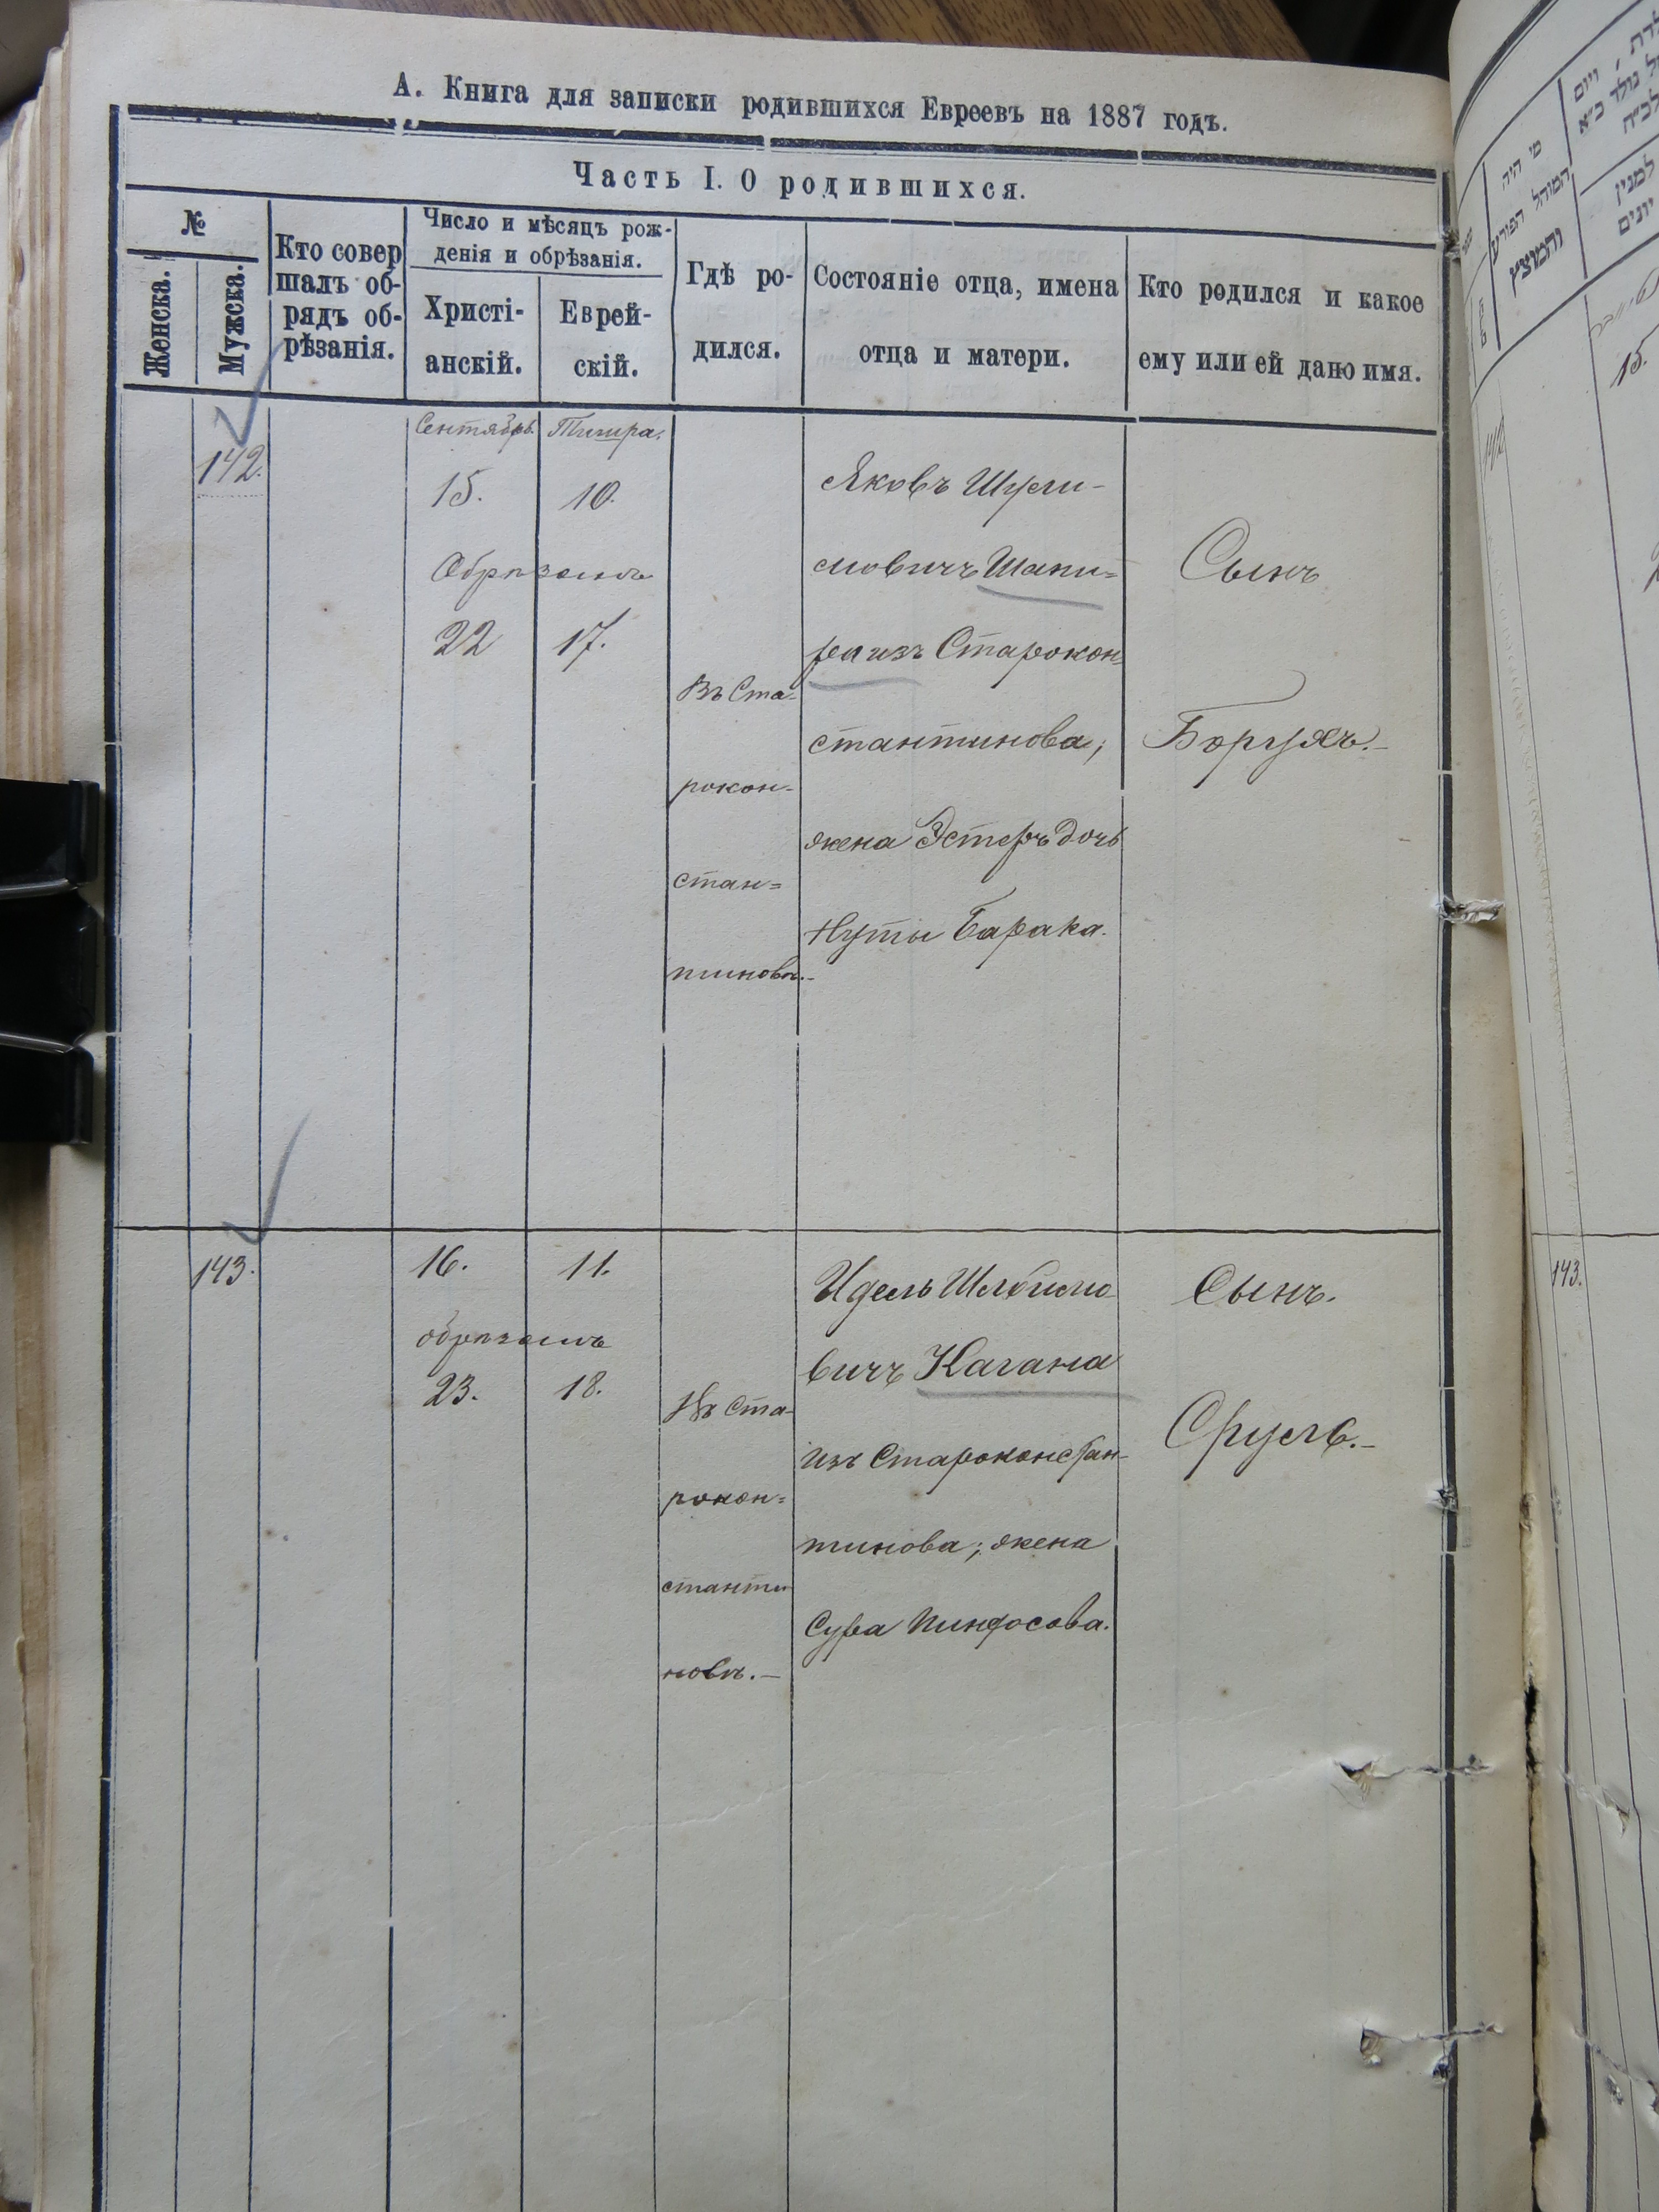 А. Книга для записки родившихся Евреевъ на 1887 годъ.
Часть I. О родившихся.
№
Женска.
Мужска.
Кто совер
шалъ об-
рядъ об-
рѣзанія.
Число и мѣсяцъ рож-
денія и обрѣзанія.
Христі-
анскій.
Еврей-
скій.
Гдѣ ро-
дился.
Состояніе отца, имена
отца и матери.
Кто родился и какое
ему или ей дано имя.
142.
Сентябрь. Тишра.
15. 10.
Обрѣзанъ
22 17.
Въ Ста-
рокон-
стан=
тиновѣ.-
Яковъ Шули-
мовичъ Шапи=
ра изъ Старокон=
стантинова;
жена Эстеръ дочь
Нуты Барака.
Сынъ
Боруχъ.-
143.
16. 11.
обрѣзанъ
23. 18.
Въ Ста-
рокон=
станти
новѣ.-
Идель Шлоймо
вичъ Кагана
изъ Староконстан-
тинова; жена
Сура Пинхосова.
Сынъ.
Сруль.-
מי היה
המוהל הפורע
והמוצץ
למנין
יונים
15.
142
143.